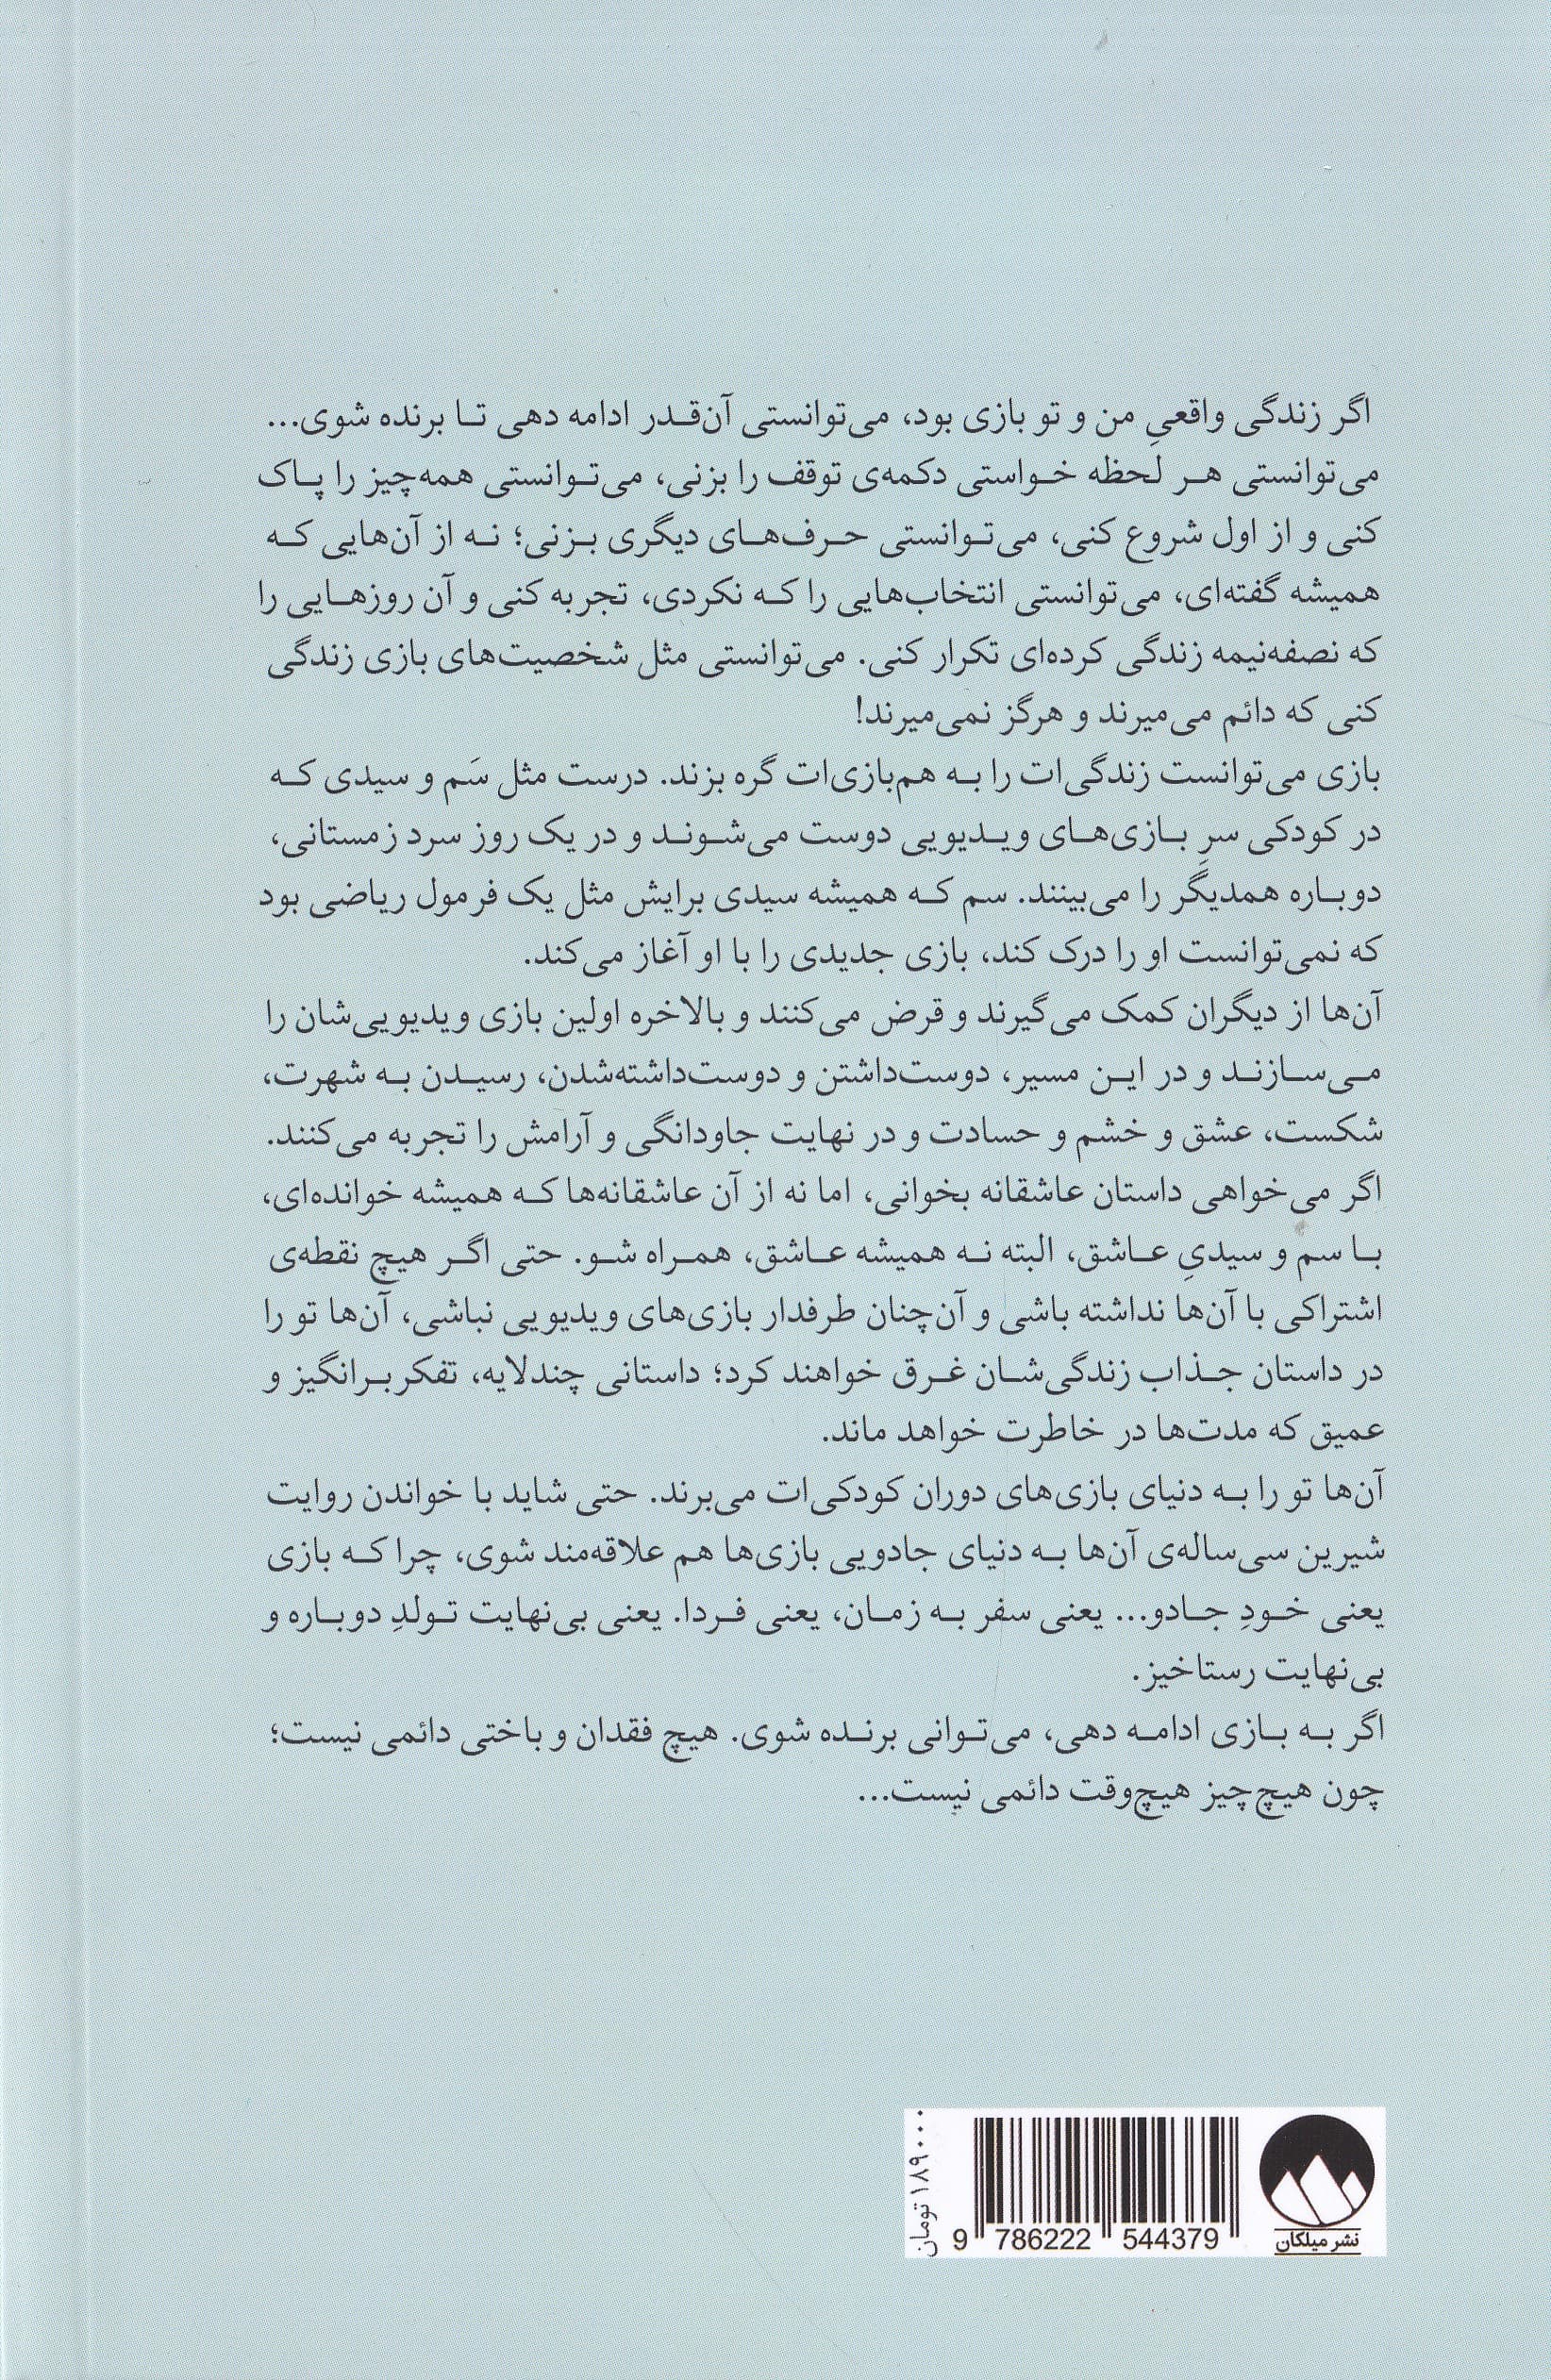 اگر زندگی واقعیِ من و تو بازی بود، می‌توانستی آن‌قدر ادامه دهی تا برنده شوی...
می‌توانستی هر لحظه خواستی دکمه‌ی توقف را بزنی، می‌توانستی همه‌چیز را پاک
کنی و از اول شروع کنی، می‌توانستی حرف‌های دیگری بزنی؛ نه از آن‌هایی که
همیشه گفته‌ای، می‌توانستی انتخاب‌هایی را که نکردی، تجربه کنی و آن روزهایی را
که نصفه‌نیمه زندگی کرده‌ای تکرار کنی. می‌توانستی مثل شخصیت‌های بازی زندگی
کنی که دائم می‌میرند و هرگز نمی‌میرند!
بازی می‌توانست زندگی‌ات را به هم‌بازی‌ات گره بزند. درست مثل سَم و سیدی که
در کودکی سرِ بازی‌های ویدیویی دوست می‌شوند و در یک روز سرد زمستانی،
دوباره همدیگر را می‌بینند. سم که همیشه سیدی برایش مثل یک فرمول ریاضی بود
که نمی‌توانست او را درک کند، بازی جدیدی را با او آغاز می‌کند.
آن‌ها از دیگران کمک می‌گیرند و قرض می‌کنند و بالاخره اولین بازی ویدیویی‌شان را
می‌سازند و در این مسیر، دوست‌داشتن و دوست‌داشته‌شدن، رسیدن به شهرت،
شکست، عشق و خشم و حسادت و در نهایت جاودانگی و آرامش را تجربه می‌کنند.
اگر می‌خواهی داستان عاشقانه بخوانی، اما نه از آن عاشقانه‌ها که همیشه خوانده‌ای،
با سم و سیدیِ عاشق، البته نه همیشه عاشق، همراه شو. حتی اگر هیچ نقطه‌ی
اشتراکی با آن‌ها نداشته باشی و آن‌چنان طرفدار بازی‌های ویدیویی نباشی، آن‌ها تو را
در داستان جذاب زندگی‌شان غرق خواهند کرد؛ داستانی چندلایه، تفکربرانگیز و
عمیق که مدت‌ها در خاطرت خواهد ماند.
آن‌ها تو را به دنیای بازی‌های دوران کودکی‌ات می‌برند. حتی شاید با خواندن روایت
شیرین سی‌ساله‌ی آن‌ها به دنیای جادویی بازی‌ها هم علاقه‌مند شوی، چرا که بازی
یعنی خودِ جادو... یعنی سفر به زمان، یعنی فردا. یعنی بی‌نهایت تولدِ دوباره و
بی‌نهایت رستاخیز.
اگر به بازی ادامه دهی، می‌توانی برنده شوی. هیچ فقدان و باختی دائمی نیست؛
چون هیچ‌چیز هیچ‌وقت دائمی نیست...
۱۸۹۰۰۰ تومان
9 786222 544379
نشر میلکان